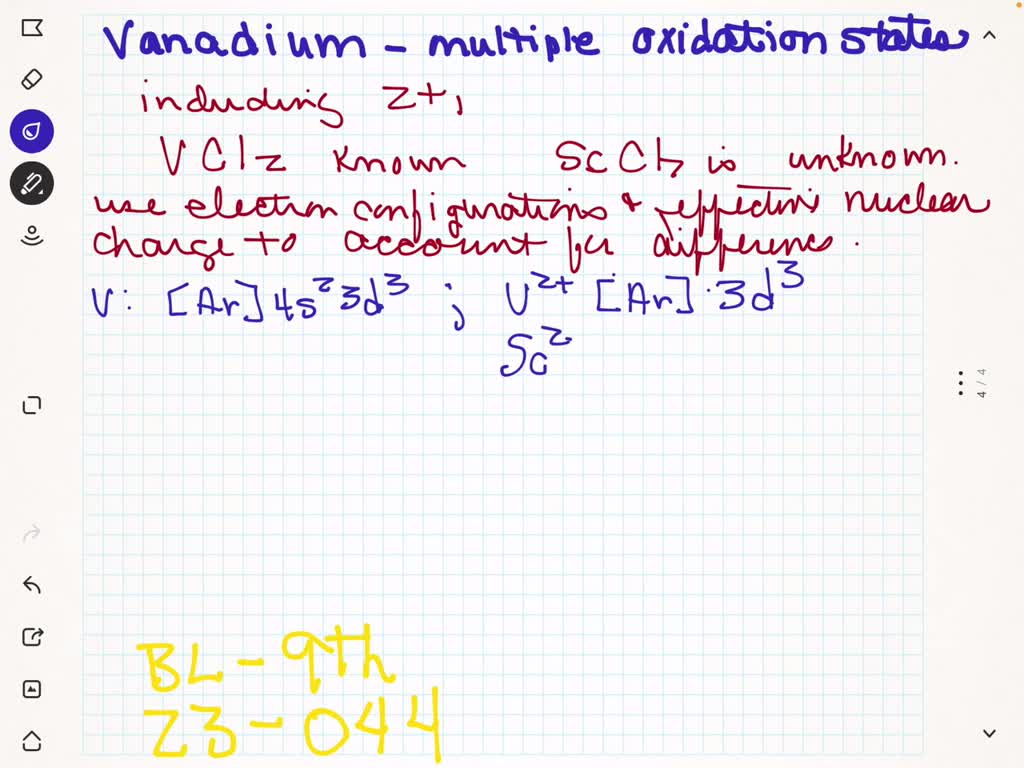 Vanadium - multiple oxidation states
including 2+,
VCl2 known ScCl2 is unknown.
use electron configurations & effective nuclear
charge to account for difference.
V: [Ar] 4s² 3d³ ; V²⁺ [Ar] 3d³
Sc²
4/4
BL - 9th
23-044